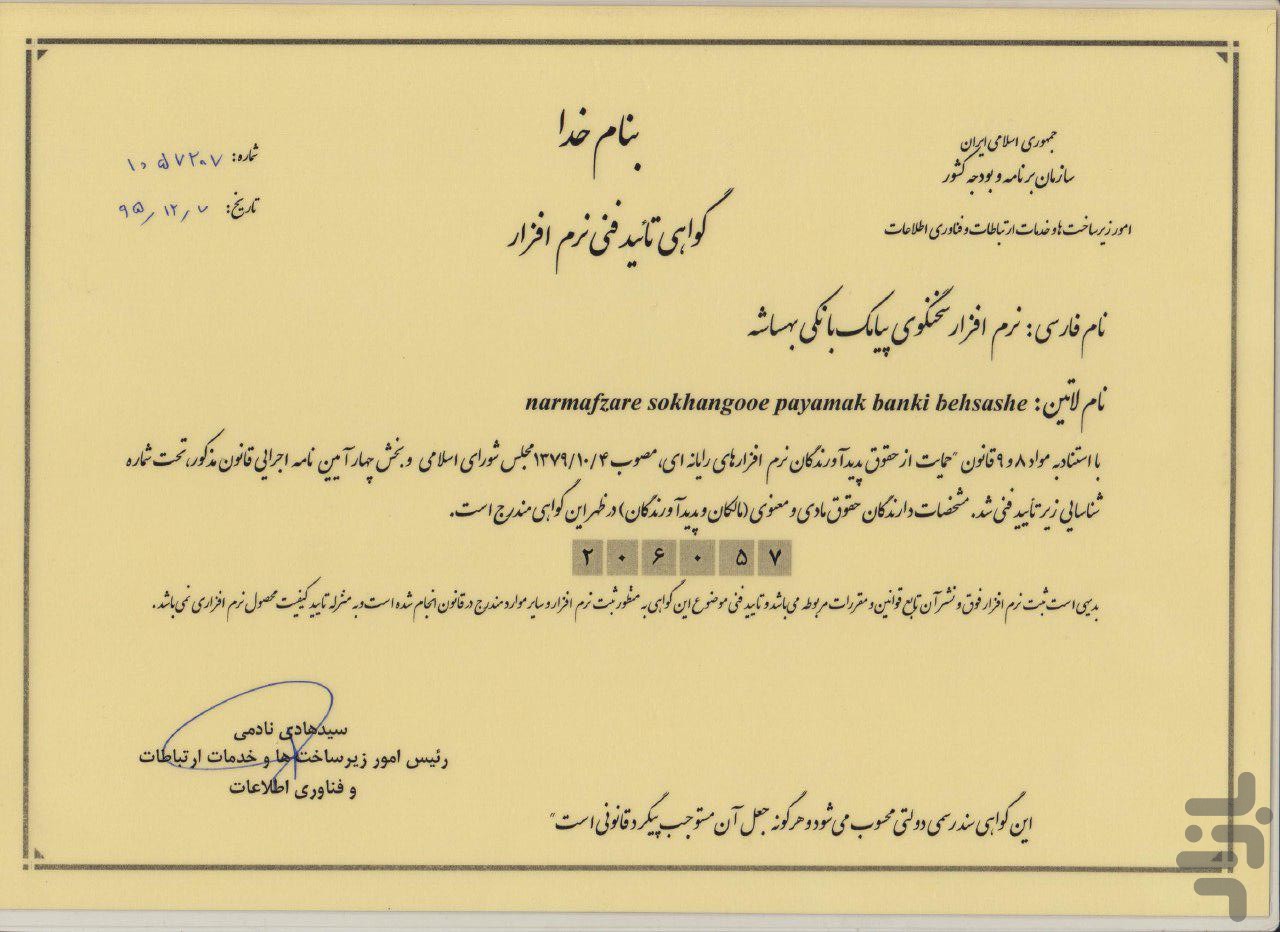 بنام خدا
جمهوری اسلامی ایران
سازمان برنامه و بودجه کشور
امور زیرساخت ها و خدمات ارتباطات و فناوری اطلاعات
شماره: ۱۰۵۷۲۰۷
تاریخ: ۹۵/۱۲/۷
گواهی تائید فنی نرم افزار
نام فارسی: نرم افزار سخنگوی پیامک بانکی بهساشه
نام لاتین: narmafzare sokhangooe payamak banki behsashe
با استناد به مواد ۸ و ۹ قانون "حمایت از حقوق پدیدآورندگان نرم افزارهای رایانه ای، مصوب ۱۳۷۹/۱۰/۴ مجلس شورای اسلامی و بخش چهار آیین نامه اجرایی قانون مذکور، تحت شماره
شناسایی زیر تأیید فنی شد. مشخصات دارندگان حقوق مادی و معنوی (مالکان و پدیدآورندگان) در ظهر این گواهی مندرج است.
۲۰۶۰۵۷
بدیهی است ثبت نرم افزار فوق و نشر آن تابع قوانین و مقررات مربوطه می باشد و تایید فنی موضوع این گواهی به منظور ثبت نرم افزار و سایر موارد مندرج در قانون انجام شده است و به منزله تایید کیفیت محصول نرم افزاری نمی باشد.
سیدهادی نادمی
رئیس امور زیرساخت ها و خدمات ارتباطات
و فناوری اطلاعات
این گواهی سند رسمی دولتی محسوب می شود و هرگونه جعل آن مستوجب پیگرد قانونی است"
بازار